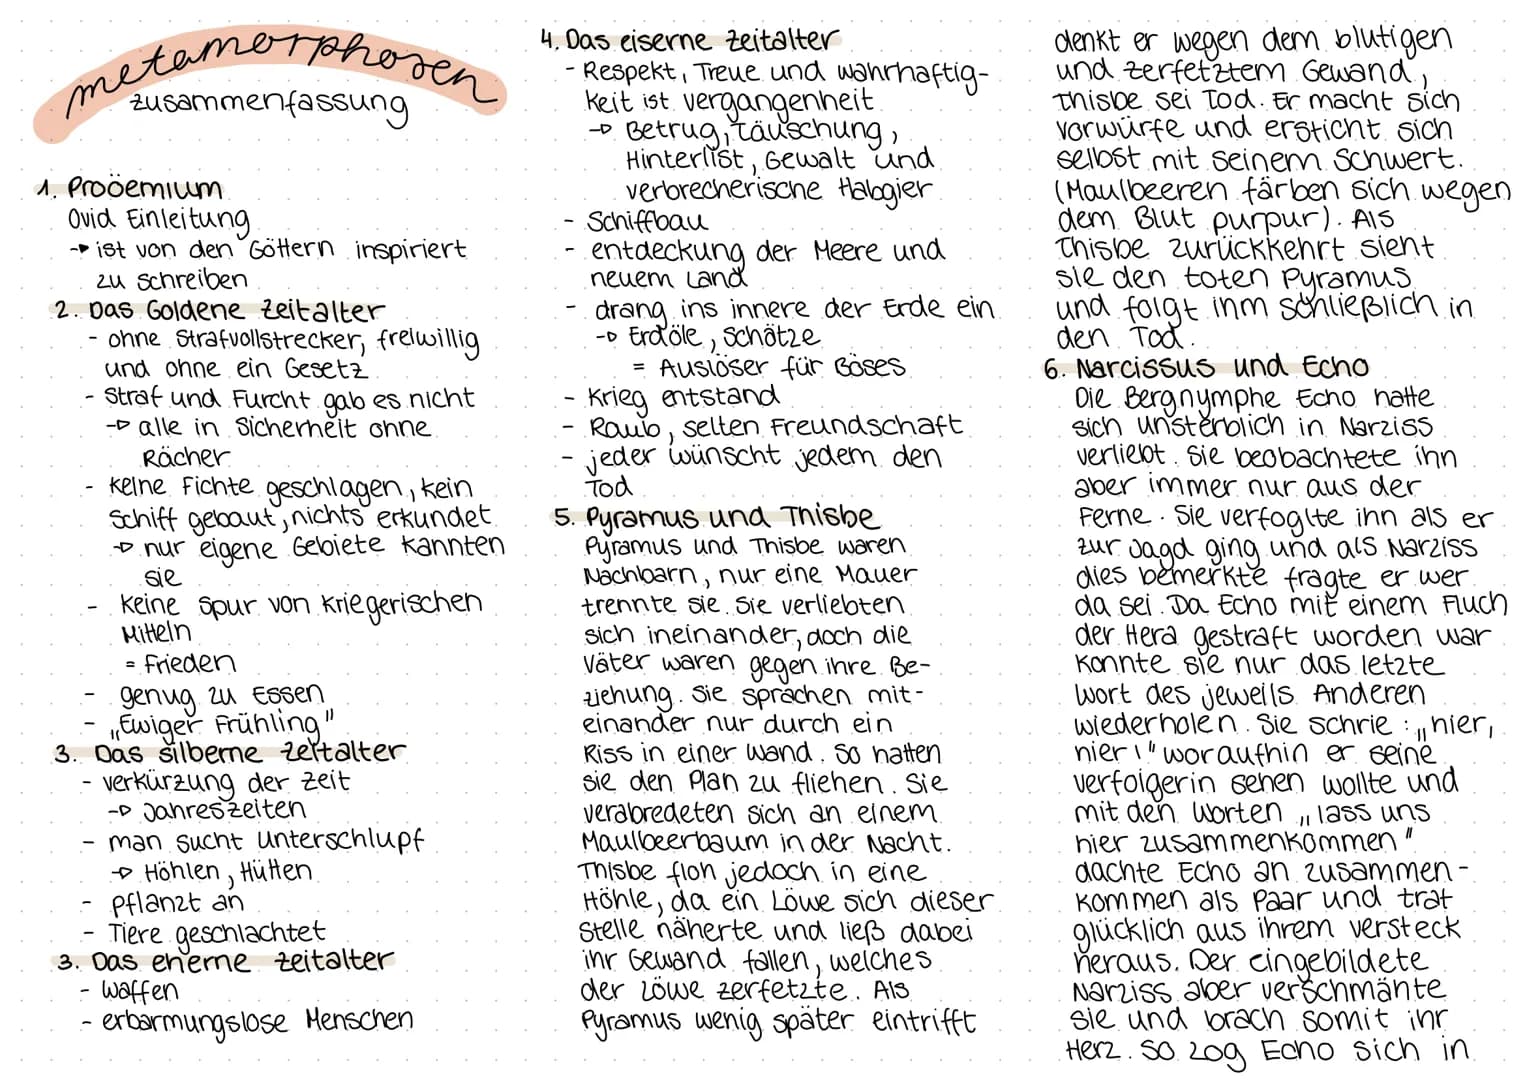 metamorphosen
zusammenfassung
1. Proöemium
Ovid Einleitung
→ ist von den Göttern inspiriert
zu schreiben
2. Das Goldene Zeitalter
- ohne Strafvollstrecker, freiwillig
und ohne ein Gesetz
- Straf und Furcht gab es nicht
→ alle in Sicherheit ohne
Rächer
- keine Fichte geschlagen, kein
Schiff gebaut, nichts erkundet
→ nur eigene Gebiete kannten
sie
- keine Spur von kriegerischen
Mitteln
= Frieden
- genug zu Essen
- „Ewiger Frühling"
3. Das silberne Zeitalter
- verkürzung der Zeit
→ Jahreszeiten
- man sucht unterschlupf
→ Höhlen, Hütten
- pflanzt an
- Tiere geschlachtet
3. Das eherne Zeitalter
- Waffen
- erbarmungslose Menschen
4. Das eiserne Zeitalter
- Respekt, Treue und wahrhaftig-
keit ist vergangenheit
→ Betrug, Täuschung,
Hinterlist, Gewalt und
verbrecherische Habgier
- Schiffbau
- entdeckung der Meere und
neuem Land
- drang ins innere der Erde ein
→ Erdöle, Schätze
= Auslöser für Böses
- Krieg entstand
- Raub, selten Freundschaft
- jeder wünscht jedem den
Tod
5. Pyramus und Thisbe
Pyramus und Thisbe waren
Nachbarn, nur eine Mauer
trennte sie. Sie verliebten
sich ineinander, doch die
Väter waren gegen ihre Be-
ziehung. Sie sprachen mit-
einander nur durch ein
Riss in einer Wand. So hatten
sie den Plan zu fliehen. Sie
verabredeten sich an einem
Maulbeerbaum in der Nacht.
Thisbe floh jedoch in eine
Höhle, da ein Löwe sich dieser
Stelle näherte und ließ dabei
ihr Gewand fallen, welches
der Löwe zerfetzte. Als
Pyramus wenig später eintrifft
denkt er wegen dem blutigen
und zerfetztem Gewand,
Thisbe sei Tod. Er macht sich
vorwürfe und ersticht sich
selbst mit seinem Schwert.
(Maulbeeren färben sich wegen
dem Blut purpur). Als
Thisbe zurückkehrt sieht
sie den toten Pyramus
und folgt ihm schließlich in
den Tod.
6. Narcissus und Echo
Die Bergnymphe Echo hatte
sich unsterblich in Narziss
verliebt. Sie beobachtete ihn
aber immer nur aus der
Ferne. Sie verfoglte ihn als er
zur Jagd ging und als Narziss
dies bemerkte fragte er wer
da sei. Da Echo mit einem Fluch
der Hera gestraft worden war
konnte sie nur das letzte
Wort des jeweils Anderen
wiederholen. Sie schrie: „hier,
hier!" woraufhin er seine
verfolgerin sehen wollte und
mit den Worten „lass uns
hier zusammenkommen"
dachte Echo an zusammen-
kommen als Paar und trat
glücklich aus ihrem versteck
heraus. Der eingebildete
Narziss aber verschmähte
sie und brach somit ihr
Herz. So zog Echo sich in